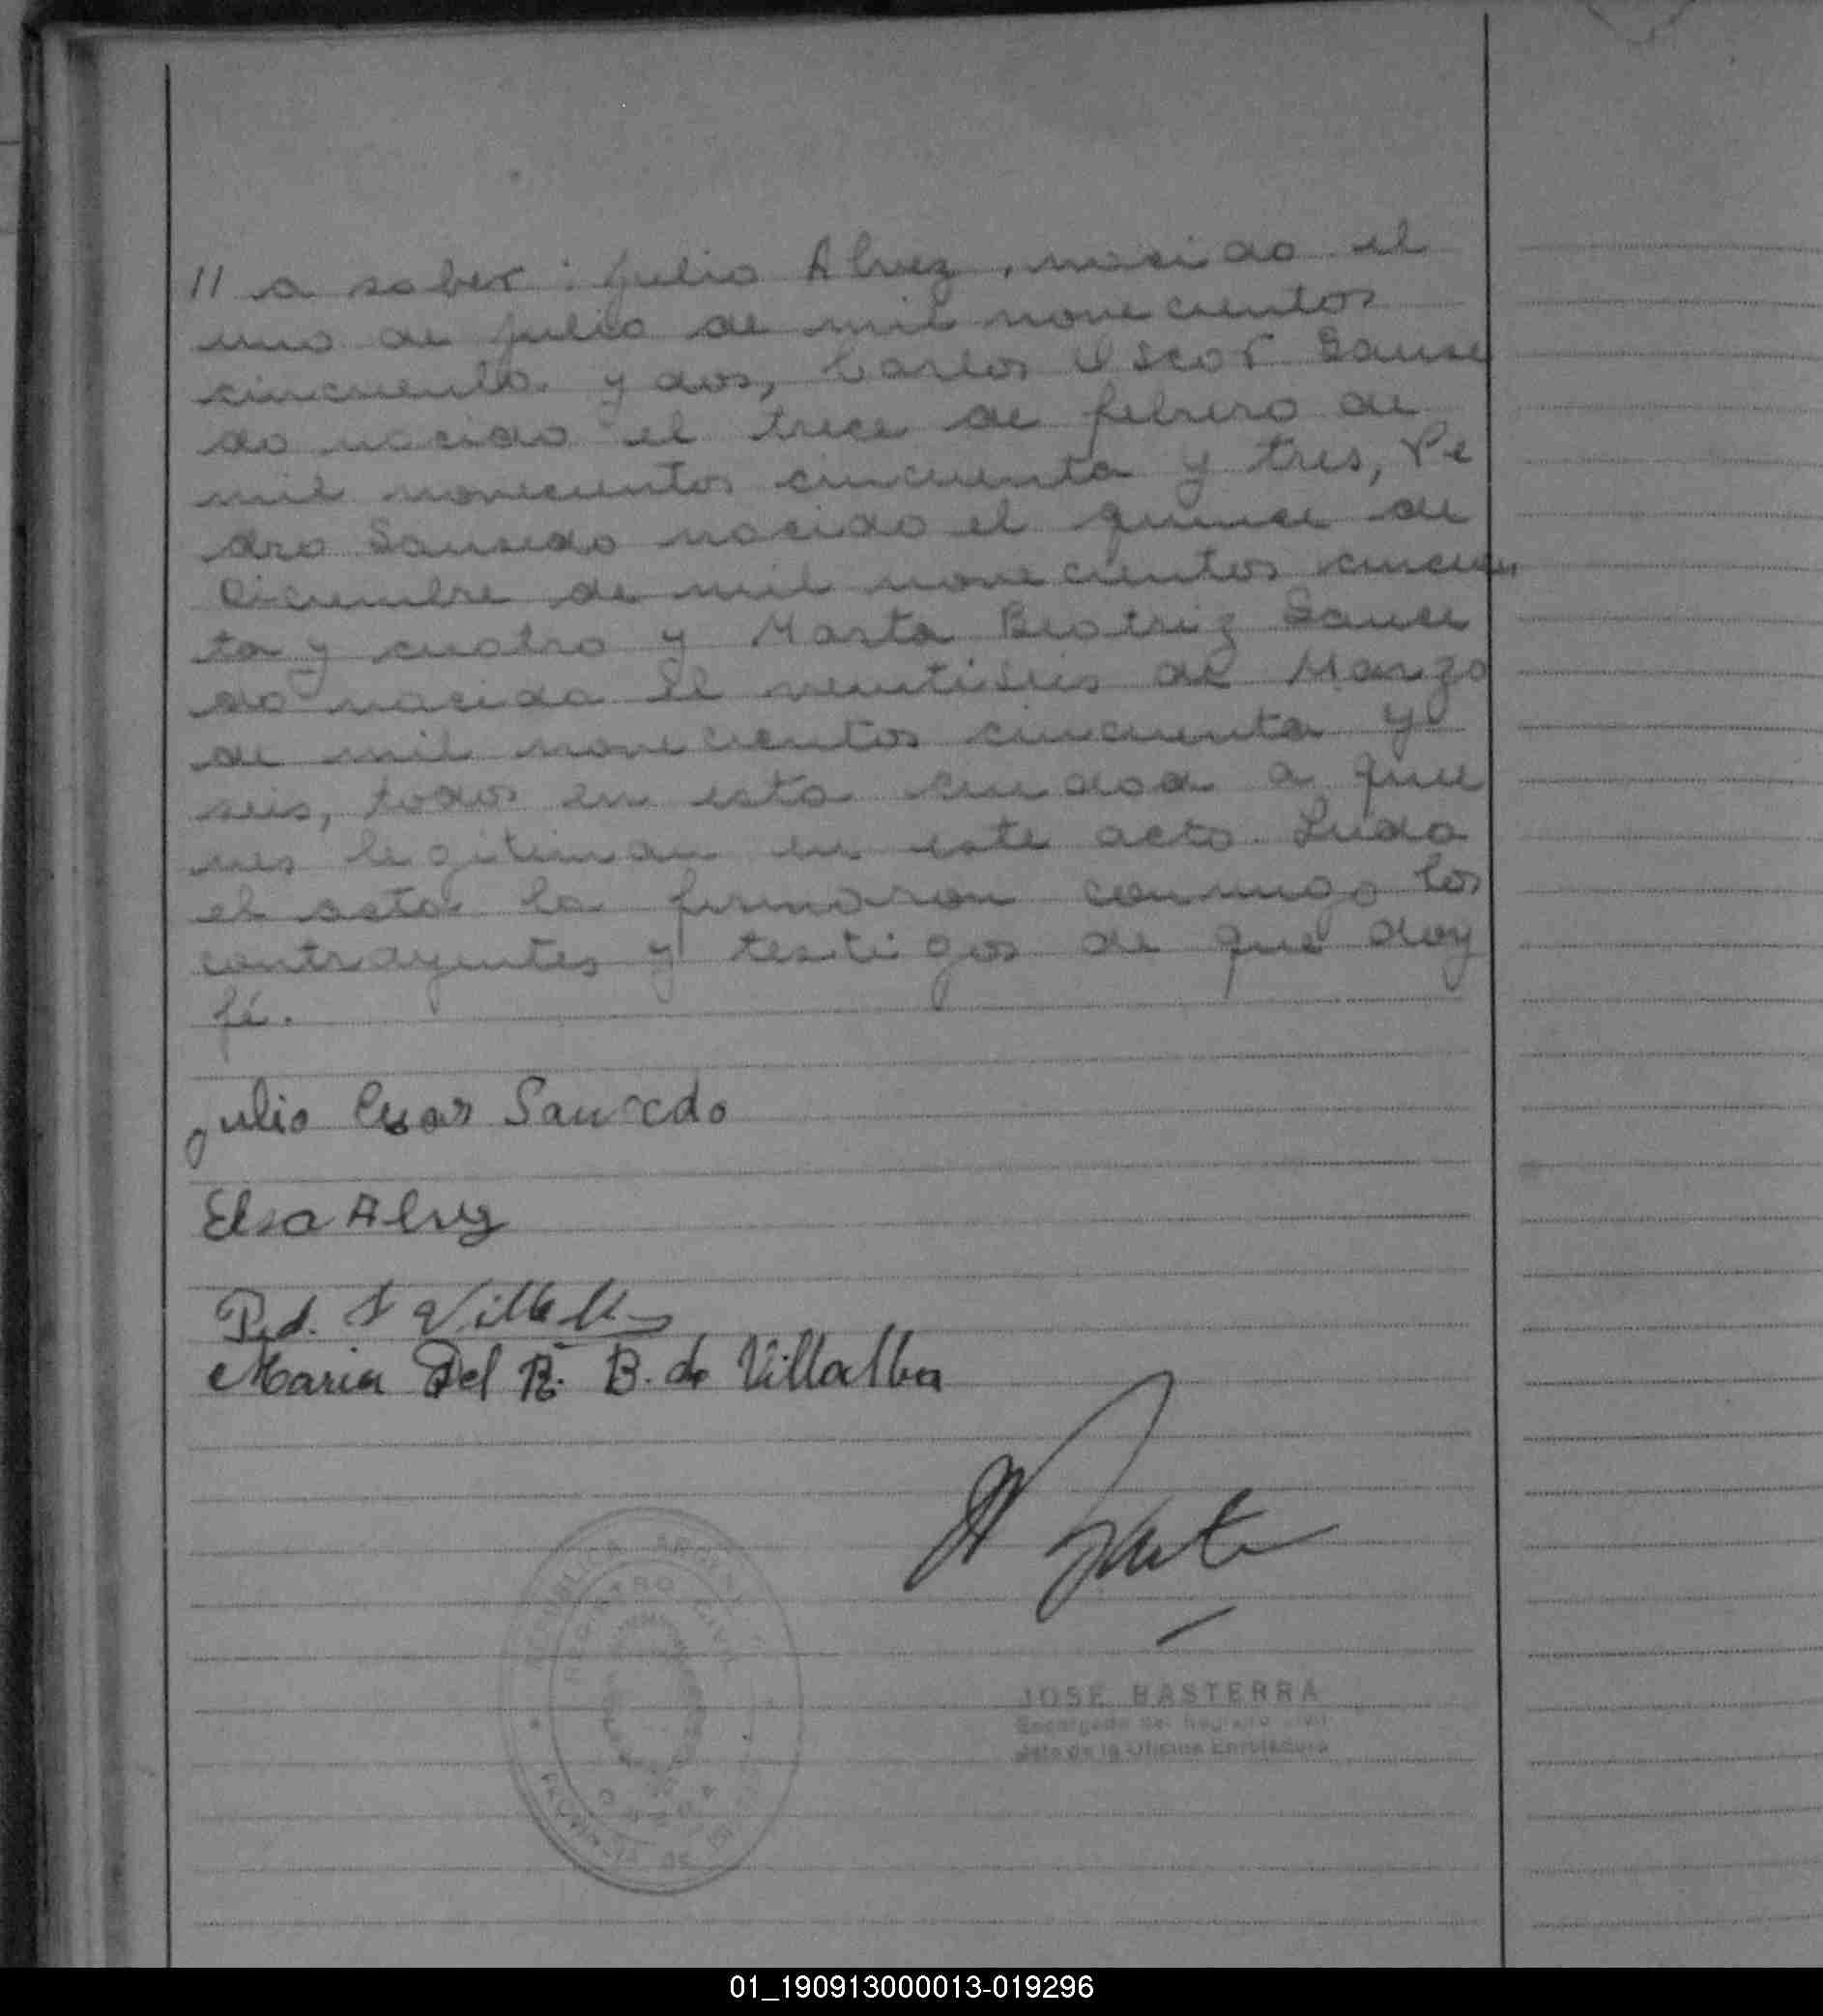 // a saber: Julio Alvez, nacido el
uno de julio de mil novecientos
cincuenta y dos, Carlos Oscar Sause
do nacido el trece de febrero de
mil novecientos cincuenta y tres, Pe
dro Sausedo nacido el quince de
Diciembre de mil novecientos cincuen
ta y cuatro y Marta Beatriz Sauce
do nacida el veintiseis de Marzo
de mil novecientos cincuenta y
seis, todos en esta ciudad a quie
nes legitiman en este acto. Leida
el acta la firmaron conmigo los
contrayentes y testigos de que doy
fé.
Julio Cesar Saucedo
Elsa Alvez
Maria Del R. B. de Villalba
REPUBLICA ARGENTINA
REGISTRO CIVIL
JOSE BASTERRA
Encargado del Registro Civil
Jefe de la Oficina Enroladora
01_190913000013-019296